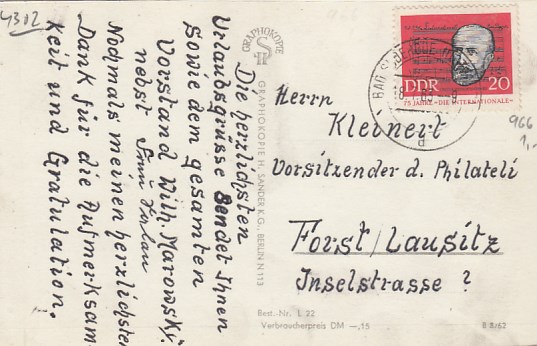 4302
966
Die herzlichsten
Urlaubsgrüsse sendet Ihnen
sowie dem gesamten
Vorstand Wilh. Marowsky.
nebst Frau
Nochmals meinen herzlichsten
Dank für die Aufmerksam-
keit und Gratulation.
GRAPHOKOPIE
GRAPHOKOPIE H. SANDER K.G., BERLIN N 113
DDR 20
75 JAHRE · DIE INTERNATIONALE ·
BAD
d
966
1,-
Herrn
Kleinert
Vorsitzender d. Philateli
Forst/Lausitz
Inselstrasse ?
Best.-Nr. L 22
Verbraucherpreis DM —,15
B 8/62